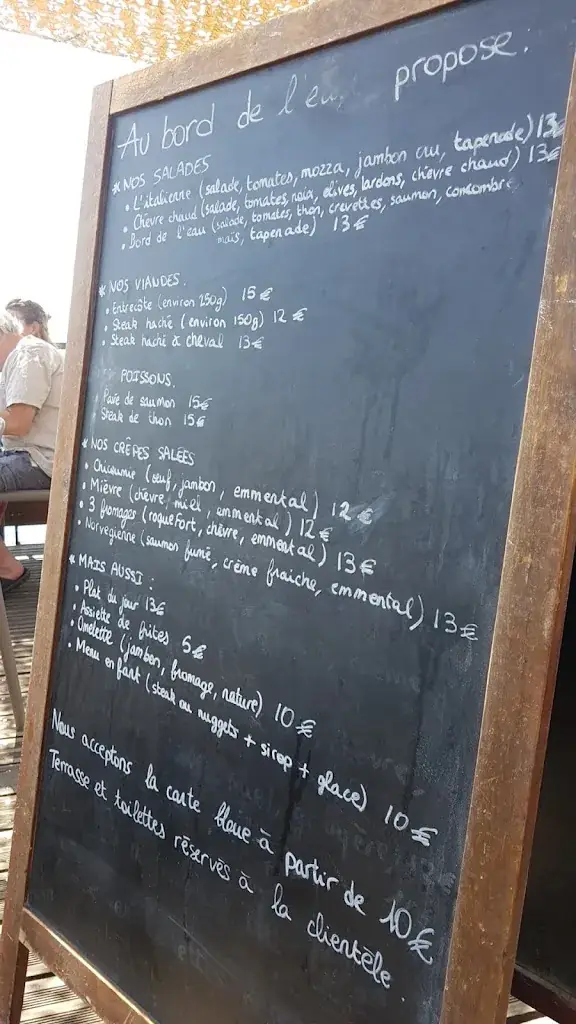 Au bord de l'eau propose:
* NOS SALADES
• L'italienne (salade, tomates, mozza, jambon cru, tapenade) 13€
• Chèvre chaud (salade, tomates, noix, olives, lardons, chèvre chaud) 13€
• Bord de l'eau (salade, tomates, thon, crevettes, saumon, concombre,
maïs, tapenade) 13€
* NOS VIANDES.
• Entrecôte (environ 250g) 15€
• Steak haché (environ 150g) 12€
• Steak haché à cheval 13€
POISSONS.
• Pavé de saumon 15€
• Steak de thon 15€
* NOS CRÊPES SALÉES
(œuf, jambon, emmental) 12€
• Mièvre (chèvre, miel, emmental) 12€
• 3 fromages (roquefort, chèvre, emmental) 13€
• Norvégienne (saumon fumé, crème fraiche, emmental) 13€
* MAIS AUSSI :
• Plat du jour 13€
• Assiette de frites 5€
• Omelette (jambon, fromage, nature) 10€
• Menu enfant (steak ou nuggets + sirop + glace) 10€
Nous acceptons la carte bleue à partir de 10€
Terrasse et toilettes réservés à la clientèle.